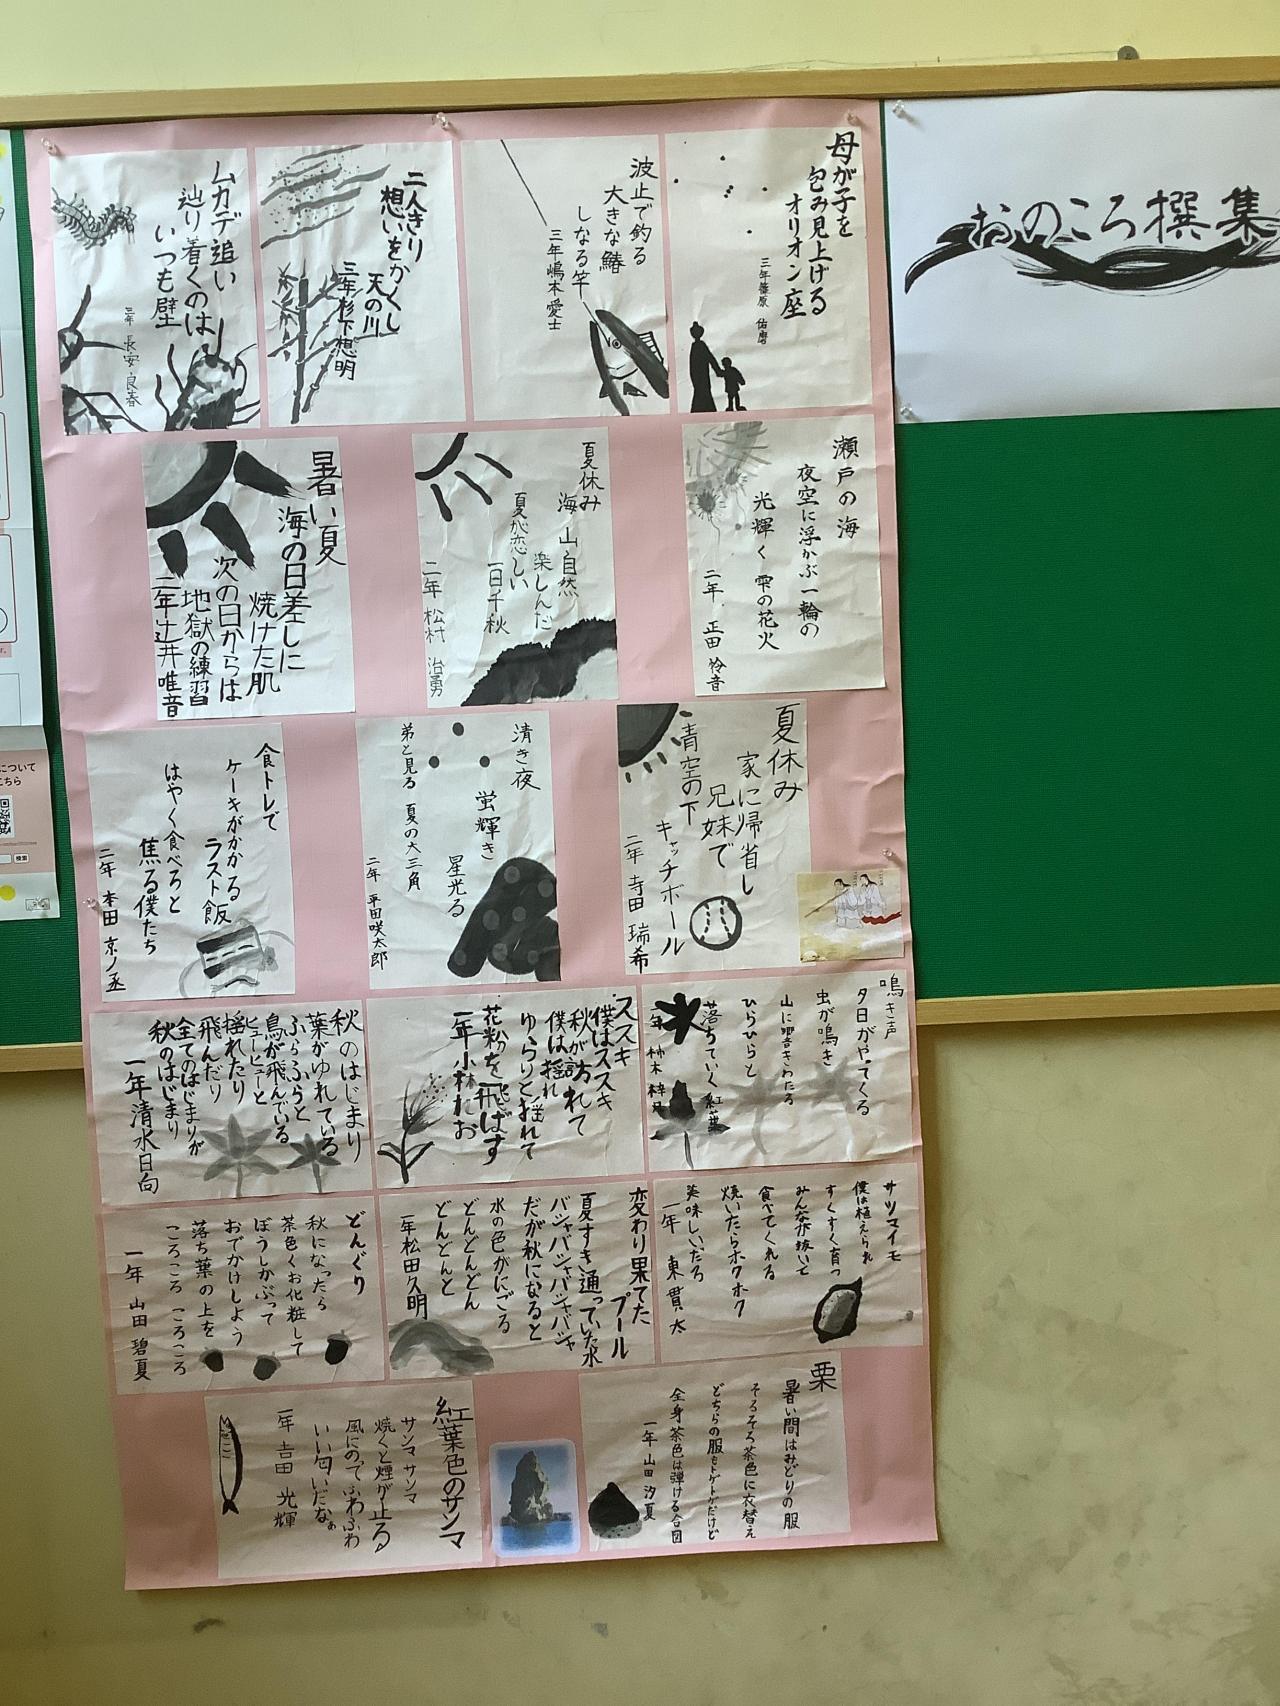 おのころ撰集
母が子を
包み見上げる
オリオン座
三年 篠原 佑磨
波止で釣る
大きな鰆
しなる竿
三年 嶋本愛士
二人きり
想いをかくし
天の川
三年 杉下想明
ムカデ追い
辿り着くのは
いつも壁
三年 長安良春
瀬戸の海
夜空に浮かぶ一輪の
光輝く 雫の花火
二年 正田 怜音
夏休み
海 山 自然
楽しんだ
夏が恋しい
一日千秋
二年 松村 治勇
暑い夏
海の日差しに
焼けた肌
次の日からは
地獄の練習
二年 辻井唯音
夏休み
家に帰省し
兄妹で
青空の下
キャッチボール
二年 寺田 瑞希
清き夜
蛍輝き
星光る
弟と見る 夏の大三角
二年 平田咲太郎
食トレで
ケーキがかかる
ラスト飯
はやく食べろと
焦る僕たち
二年 本田 京ノ丞
鳴き声
夕日がやってくる
虫が鳴き
山に響きわたる
ひらひらと
落ちていく紅葉
一年 柿木
ススキ
僕はススキ
秋が訪れて
僕は揺れ
ゆらりと揺れて
花粉を飛ばす
一年 小林たお
秋のはじまり
葉がゆれている
ふらふらと
鳥が飛んでいる
ヒューヒューと
揺れたり
飛んだり
全てのはじまりが
秋のはじまり
一年 清水日向
サツマイモ
僕は植えられ
すくすく育つ
みんなが抜いて
食べてくれる
焼いたらホクホク
美味しいだろ
一年 東 貫太
変わり果てたプール
夏すき通っていた水
バシャバシャバシャバシャ
だが秋になると
水の色がにごる
どんどんどん
どんどんと
一年 松田久明
どんぐり
秋になったら
茶色くお化粧して
ぼうしかぶって
おでかけしよう
落ち葉の上を
ころころ ころころ
一年 山田 碧夏
栗
暑い間はみどりの服
そろそろ茶色に衣替え
どちらの服もトゲトゲだけど
全身茶色は弾ける合図
一年 山田 汐夏
紅葉色のサンマ
サンマ サンマ
焼くと煙が上る
風にのってふわふわ
いい匂いだなぁ
一年 吉田 光輝
について
こちら
検索